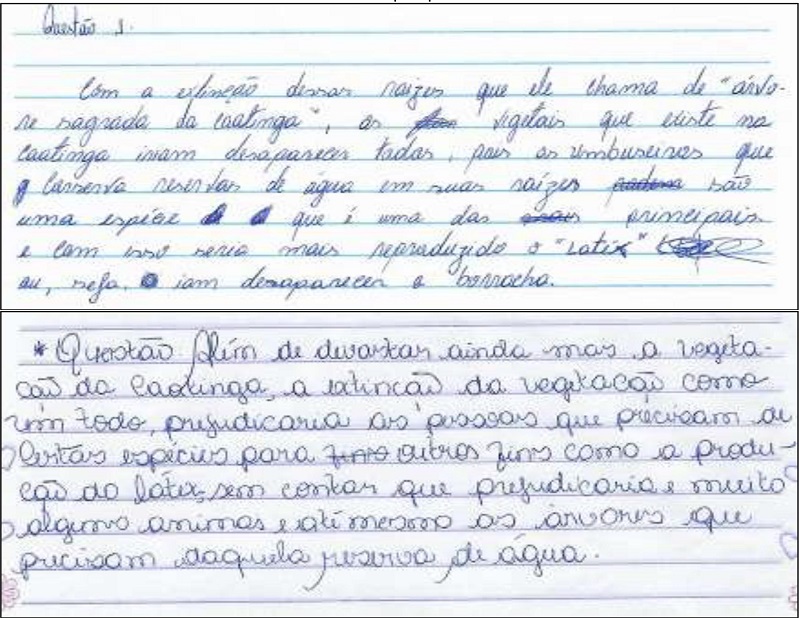 Questão 1.
Com a extinção dessas raízes que ele chama de "árvo-
re sagrada da caatinga", as vigetais que existe na
caatinga iriam desaparecer todas, pois os umbuseiros que
conserva reservas de água em suas raízes são
uma espécie que é uma das principais
e com isso seria mais reproduzido o "Latix"
ou, seja. iam desaparecer a borracha.
* Questão Além de devastar ainda mas a vegeta-
ção da Caatinga, a extincão da vegetacão como
um todo, prejudicaria as pessoas que precisam de
certas espécies para outros fins como a produ-
ção do látex, sem contar que prejudicaria e muito
alguns animas e até mesmo as árvores que
precisam daquela reserva de água.